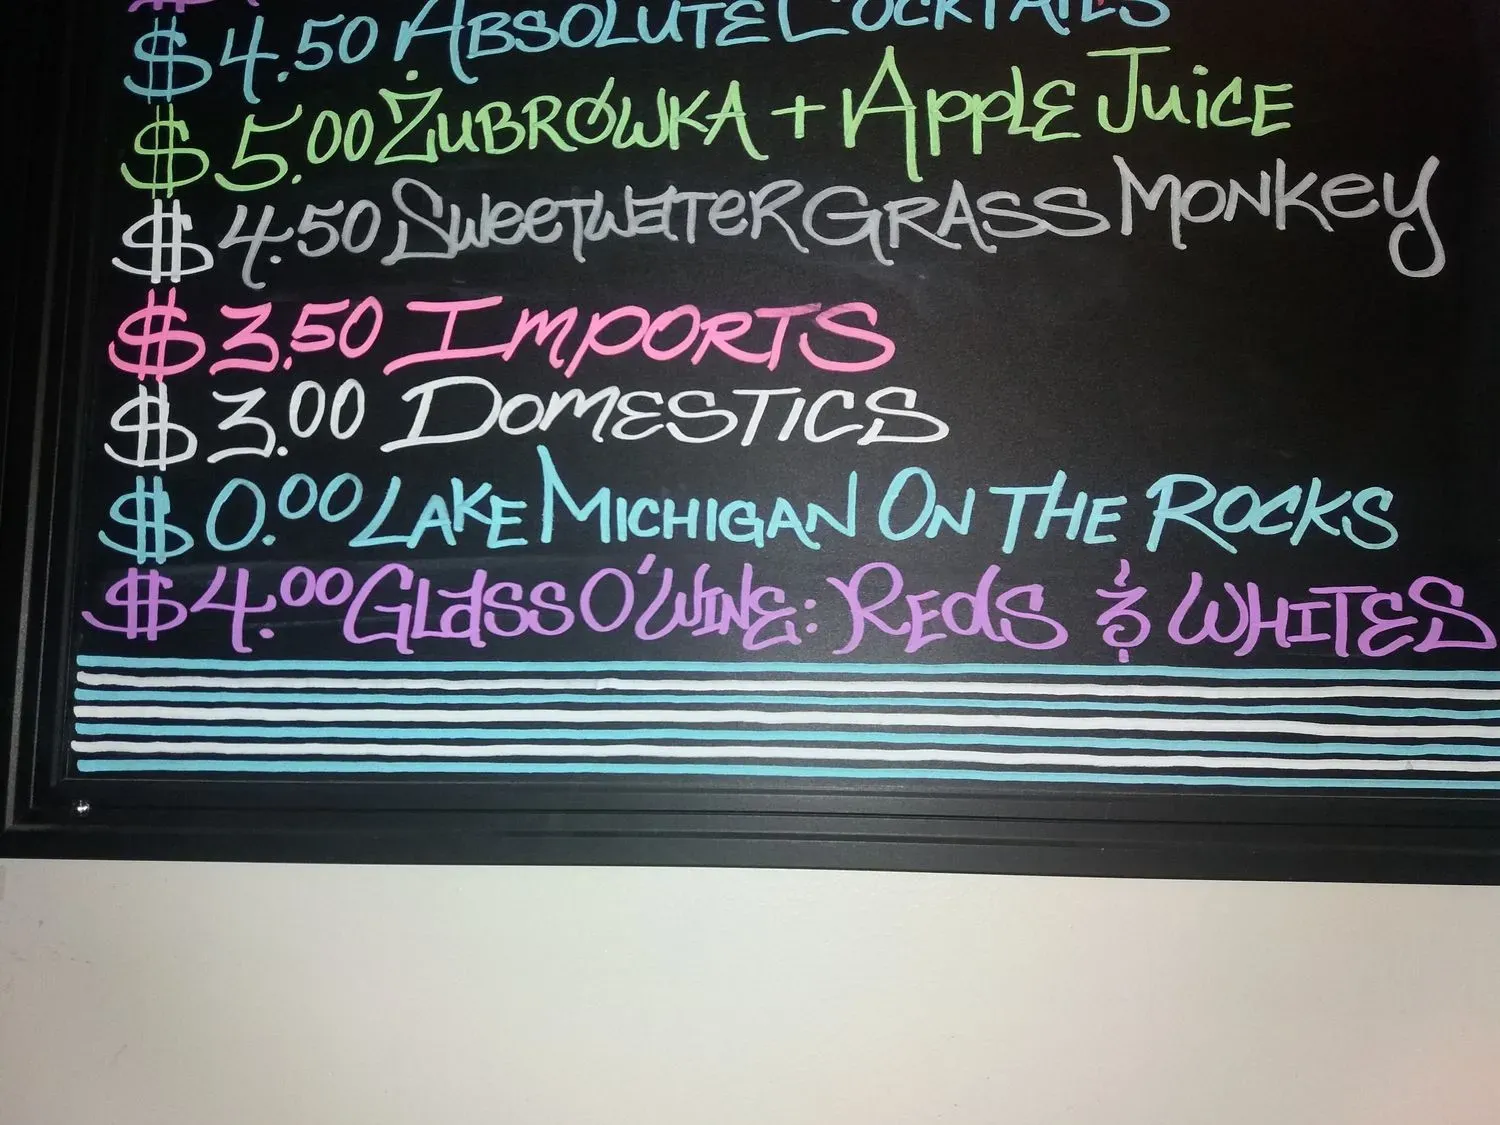 $4.50 ABSOLUTE COCKTAILS
$5.00 ŻUBRÓWKA + APPLE JUICE
$4.50 SWEETWATER GRASS MONKEY
$3.50 IMPORTS
$3.00 DOMESTICS
$0.00 LAKE MICHIGAN ON THE ROCKS
$4.00 GLASS O'WINE: REDS & WHITES